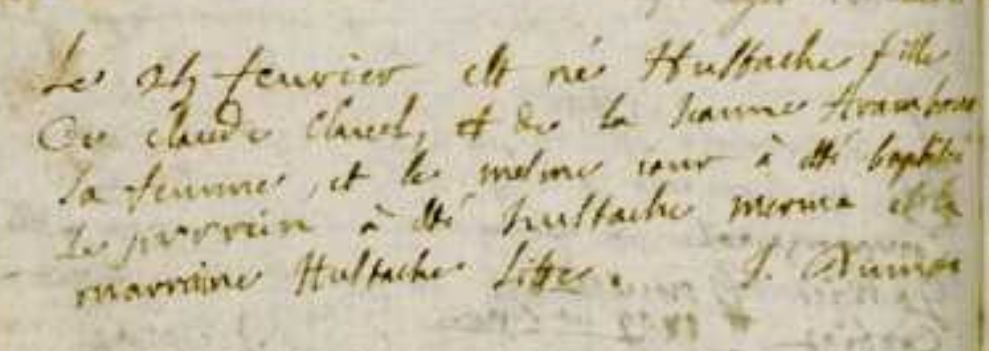 Le 24 feuvrier est né Hustache fille
De claude Claret, et de la Jeanne
sa feumme, et le mesme jour à esté baptisé
Le parrein à esté hustache merma et la
marreine Hustache